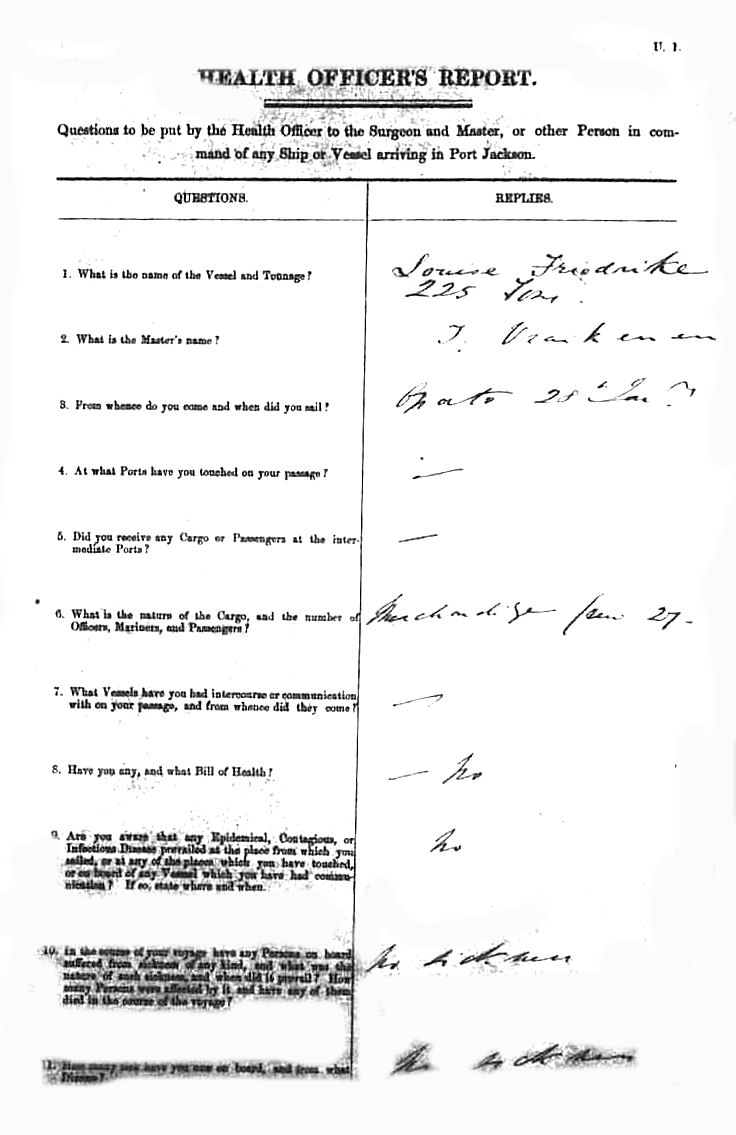 U. 1.
HEALTH OFFICER'S REPORT.
Questions to be put by the Health Officer to the Surgeon and Master, or other Person in com-
mand of any Ship or Vessel arriving in Port Jackson.
QUESTIONS.
REPLIES.
1. What is the name of the Vessel and Tonnage?
Louise Friedrike
225 Tons.
2. What is the Master's name?
3. From whence do you come and when did you sail?
Oporto 28
4. At what Ports have you touched on your passage?
—
5. Did you receive any Cargo or Passengers at the inter-
mediate Ports?
—
6. What is the nature of the Cargo, and the number of
Officers, Mariners, and Passengers?
Merchandize 27-
7. What Vessels have you had intercourse or communication
with on your passage, and from whence did they come?
—
8. Have you any, and what Bill of Health?
— No
9. Are you aware that any Epidemical, Contagious, or
Infectious Disease prevailed at the place from which you
sailed, or at any of the places which you have touched,
or on board of any Vessel which you have had commu-
nication? If so, state where and when.
No
10. In the course of your voyage have any Persons on board
suffered from sickness of any kind, and what was the
nature of such sickness, and when did it prevail? How
many Persons were affected by it and have any of them
died in the course of the voyage?
No sickness
11. How many sick have you now on board, and from what
Disease?
No sickness